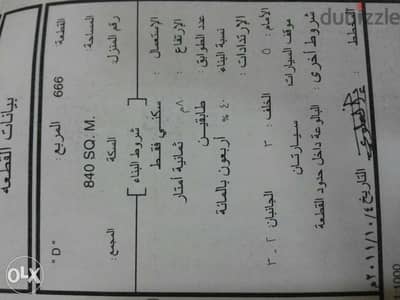 بيانات القطعه
القطعة : 666 المربع : المجمع : "D"
المساحة : 840 SQ. M.
رقم المنزل : السكة :
[ شروط البناء ]
الإستعمال : سكني فقط
الإرتفاع : ٨م ثمانية أمتار
عدد الطوابق : طابقين
نسبة البناء : ٤٠ % أربعون بالمائة
الإرتدادات :
الأمام : ٥ الخلف : ٣ الجانبان : ٢ ، ٣
موقف السيارات : سيارتان
شروط أخرى : البالوعة داخل حدود القطعة
المخطط : التاريخ ٢٠١١/١٠/٤م
1000
dubizzle
OLX